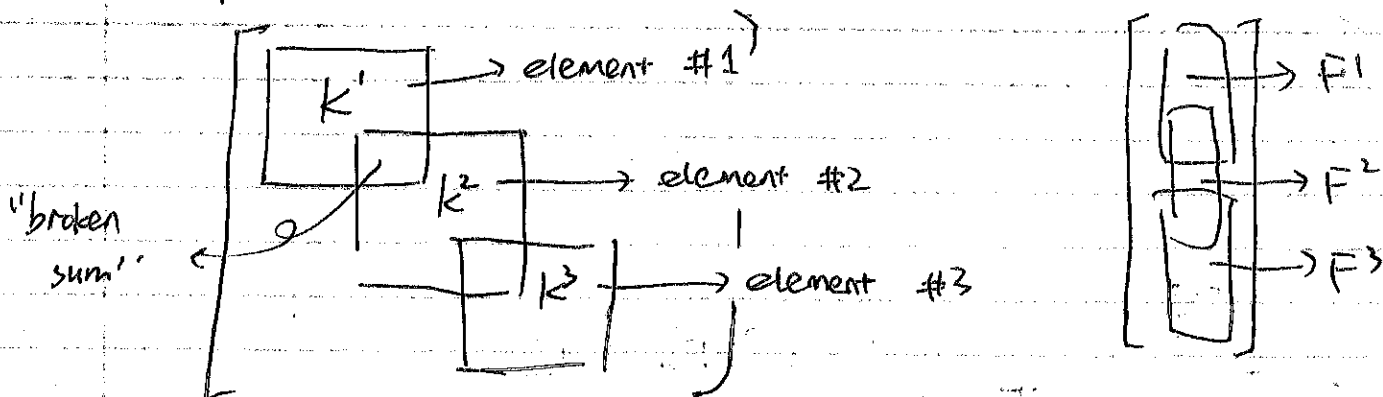 K¹ → element #1
→ F¹
K² → element #2
→ F²
"broken
sum"
K³ → element #3
→ F³